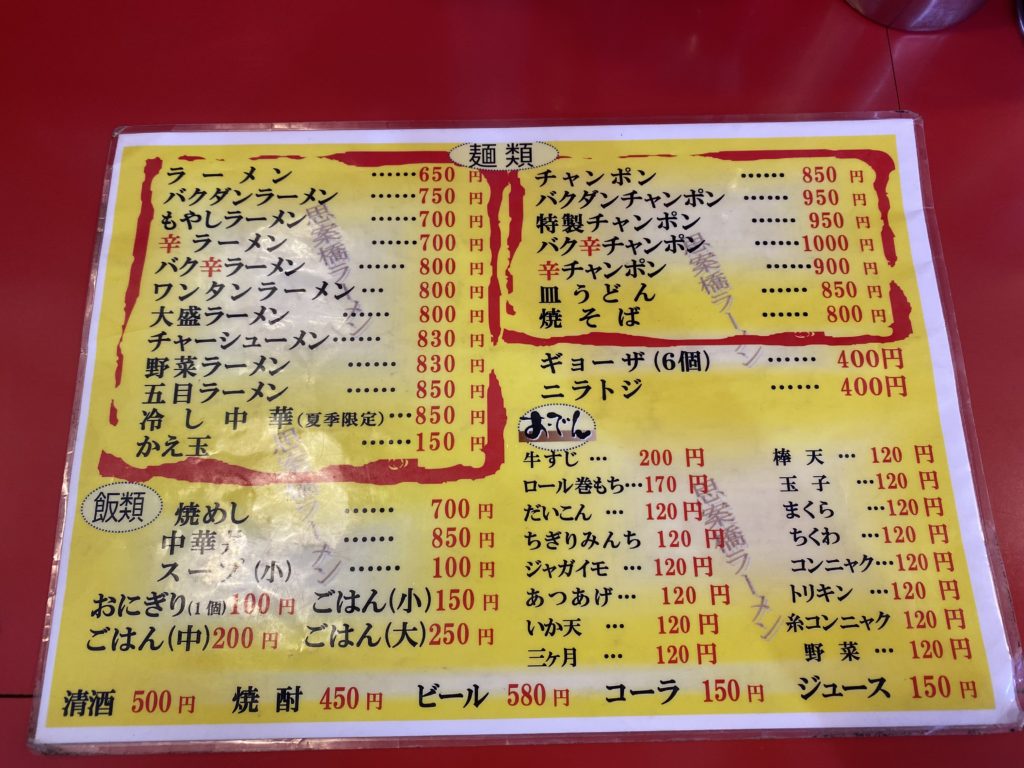 麺類
ラーメン ……650円
バクダンラーメン ……750円
もやしラーメン ……700円
辛ラーメン ……700円
バク辛ラーメン …… 800円
ワンタンラーメン… 800円
大盛ラーメン …… 800円
チャーシューメン…… 830円
野菜ラーメン …… 830円
五目ラーメン …… 850円
冷し中華(夏季限定)…850円
かえ玉 ……150円
チャンポン …… 850円
バクダンチャンポン …… 950円
特製チャンポン …… 950円
バク辛チャンポン ……1000円
辛チャンポン ……900円
皿うどん …… 850円
焼そば …… 800円
ギョーザ(6個) …… 400円
ニラトジ …… 400円
飯類
焼めし …… 700円
中華 …… 850円
スープ(小) …… 100円
おにぎり(1個)100円 ごはん(小)150円
ごはん(中)200円 ごはん(大)250円
おでん
牛すじ … 200円
ロール巻もち…170円
だいこん … 120円
ちぎりみんち 120円
ジャガイモ … 120円
あつあげ… 120円
いか天 … 120円
三ヶ月 … 120円
棒天 … 120円
玉子 …120円
まくら …120円
ちくわ …120円
コンニャク…120円
トリキン …120円
糸コンニャク 120円
野菜 … 120円
清酒 500円 焼酎 450円 ビール 580円 コーラ 150円 ジュース 150円
思案橋ラーメン
思案橋ラーメン
思案橋ラーメン
思案橋ラーメン